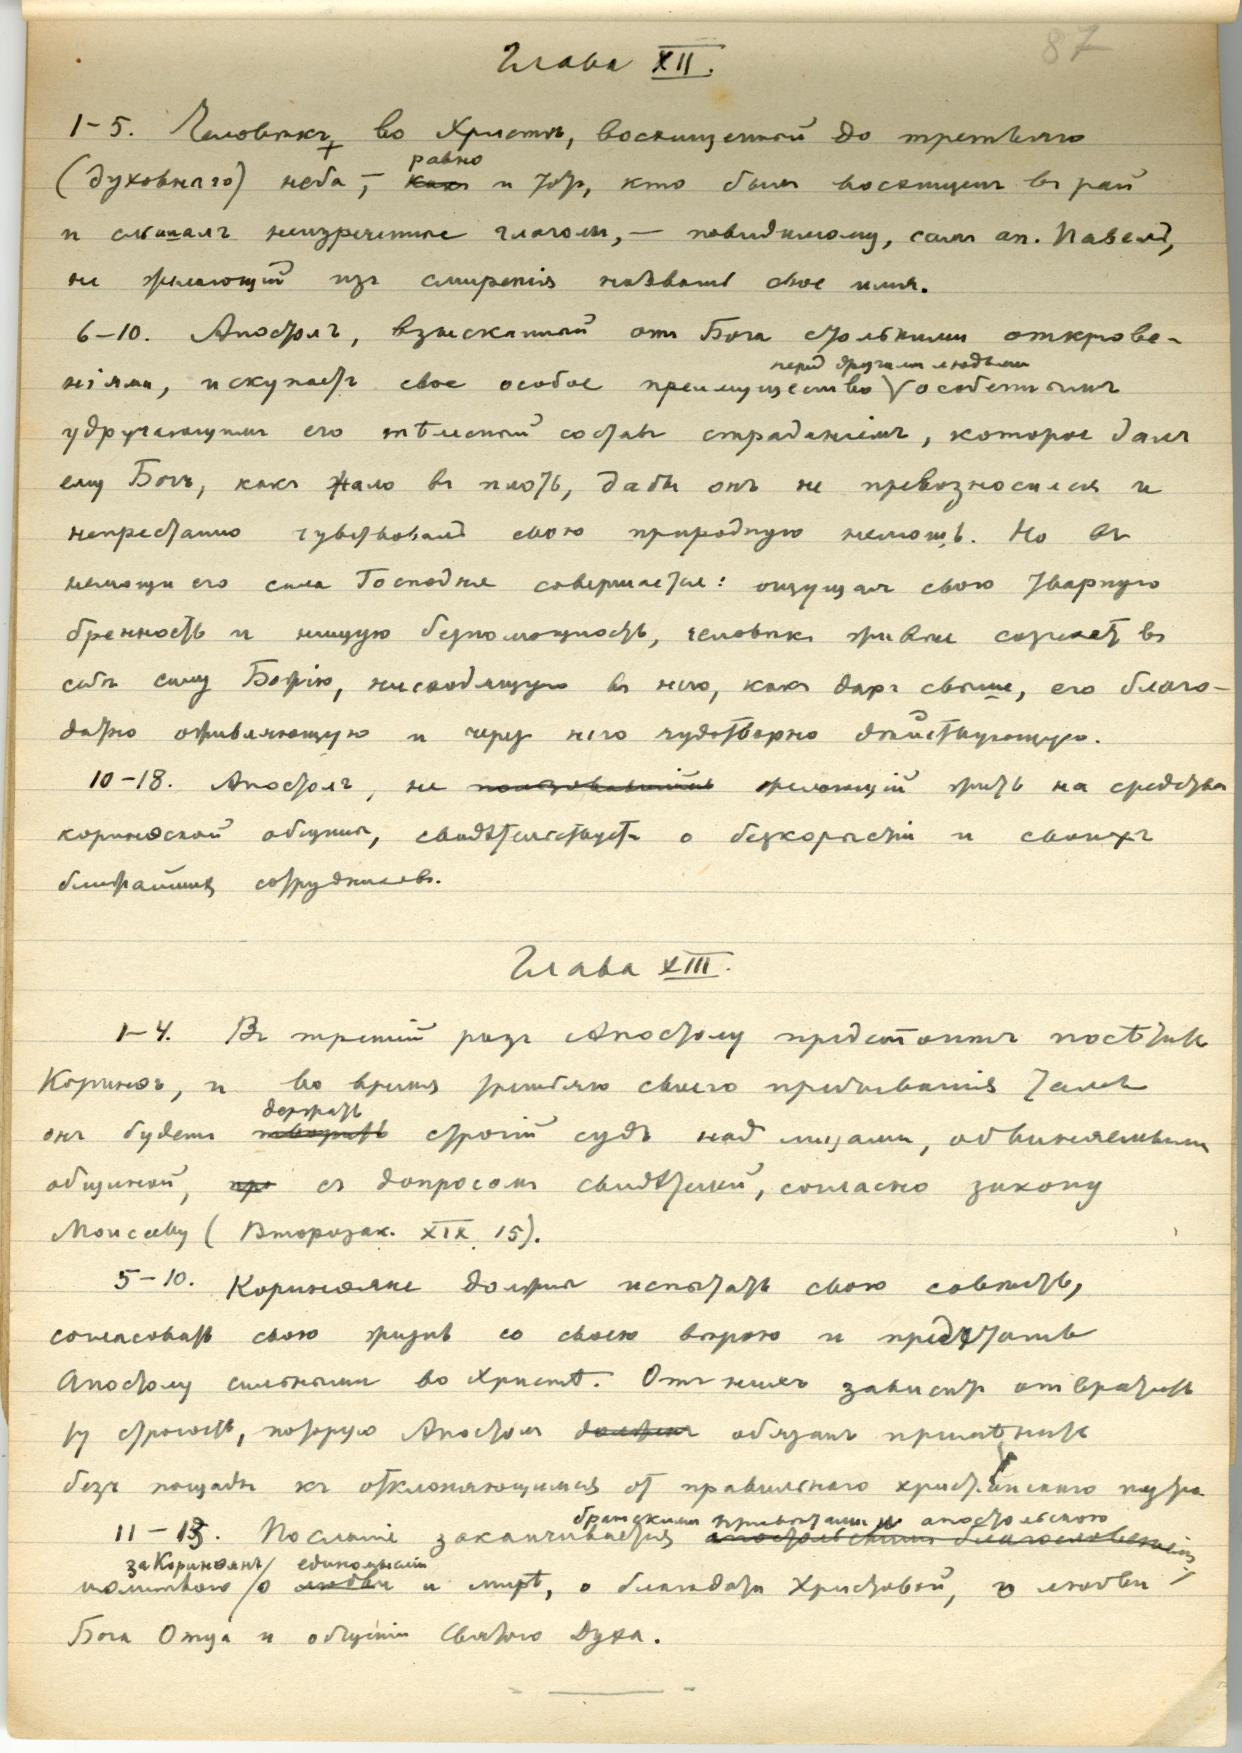 87
Глава XII.
1–5. Человѣкъ во Христѣ, восхищенный до третьяго
равно
(духовнаго) неба, – какъ и тотъ, кто былъ восхищенъ въ рай
и слышалъ неизреченные глаголы, – повидимому, самъ ап. Павелъ,
не желающій изъ смиренія назвать свое имя.
6–10. Апостолъ, взысканный отъ Бога столькими открове-
перед другими людьми
ніями, искупаетъ свое особое преимущество особеннымъ
удручающимъ его тѣлесный составъ страданіемъ, которое далъ
ему Богъ, какъ жало въ плоть, дабы онъ не превозносился и
непрестанно чувствовалъ свою природную немощь. Но въ
немощи его сила Господня совершается: ощущая свою тварную
бренность и нищую безпомощность, человѣкъ живѣе сознаетъ въ
себѣ силу Божію, нисходящую въ него, какъ даръ свыше, его благо-
датно оживляющую и черезъ него чудотворно дѣйствующую.
10–18. Апостолъ, не пользовавшійся желающій жить на средства
коринѳской общины, свидѣтельствуетъ о безкорыстіи и своихъ
ближайшихъ сотрудниковъ.
Глава XIII.
1–4. Въ третій разъ Апостолу предстоитъ посѣтить
Коринѳъ, и во время третьяго своего пребыванія тамъ
держать
онъ будетъ творить строгій судъ над лицами, обвиняемыми
общиной, съ допросомъ свидѣтелей, согласно закону
Моисееву (Второзак. XIX 15).
5–10. Коринѳяне должны испытать свою совѣсть,
согласовать свою жизнь со своею вѣрою и предстать
Апостолу сильными во Христѣ. Отъ нихъ зависитъ отвратить
ту строгость, которую Апостолъ долженъ обязанъ примѣнить
безъ пощады къ отклоняющимся отъ правильнаго христіанскаго пути
братскими привѣтами и апостольскою
11–13. Посланіе заканчивается апостольскимъ благословеніемъ
за Коринѳянъ единомысліи
молитвою о любви и мирѣ, о благодати Христовой, о любви
Бога Отца и общеніи Святого Духа.